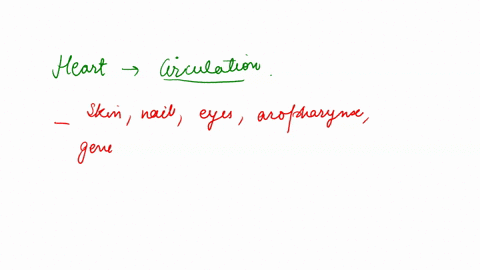 Heart → Circulation.
— Skin, nail, eyes, oropharynx,
gene